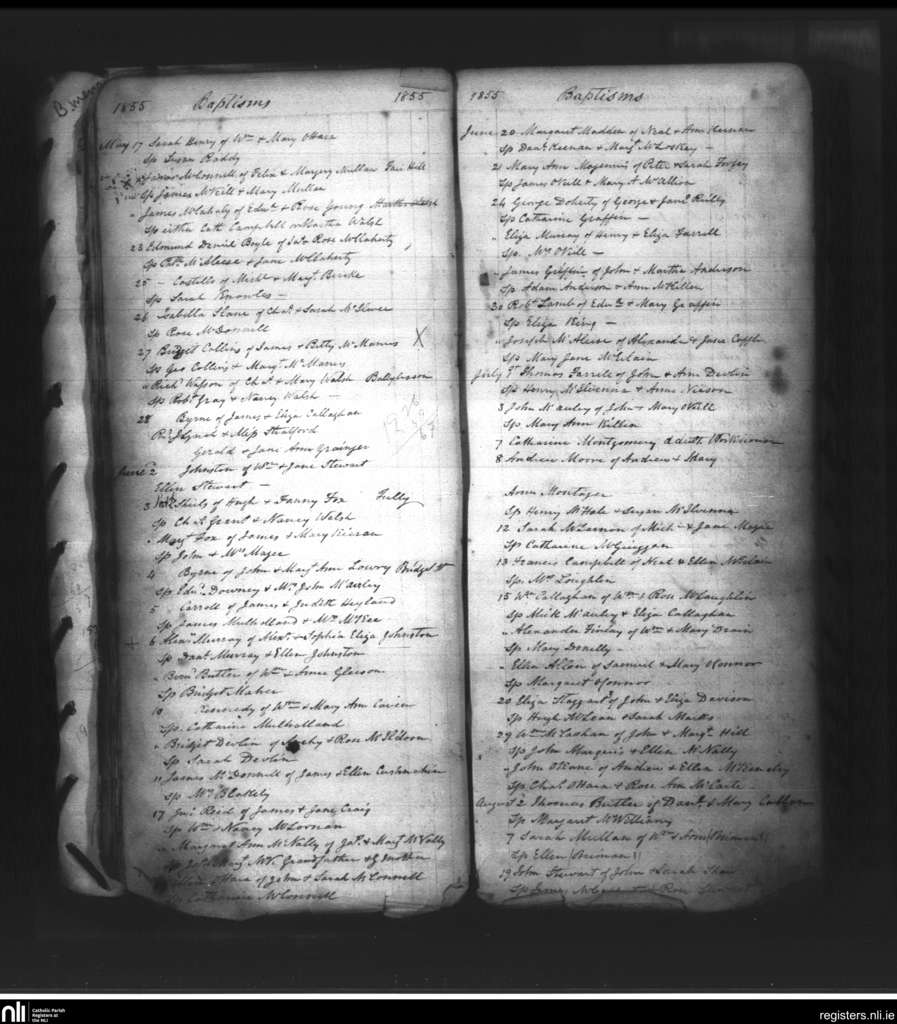 1855 Baptisms 1855
May 17 Sarah Henry of Wm & Mary OHara
Sp Susan Raddy
James McConnell of Felix & Margery Mullan Fair Hill
Sp James McNeill & Mary Mullan
" James McLahaly of Edwd & Rose Young
Sp either Cath Campbell or Martha Walsh
23 Edmund David Boyle of Jas & Rose McClaherty
Sp Patk McAleese & Jane McClaherty
25 - Costello of Michl & Margt Burke
Sp Sarah Knowles -
26 Isabella Slane of Chas & Sarah McIlwee
Sp Rose McDonnell
27 Bridget Collins of James & Betty McManus X
Sp Geo Collins & Margt McManus
" Richd Wasson of Chas & Mary Walsh
Sp Robt Gray & Nancy Walsh -
28 Byrne of James & Eliza Callaghan
P Lynch & Miss Stratford
Gerald & Jane Ann Grainger
June 2 Johnston of Wm & Jane Stewart
Ellen Stewart -
3 Sheils of Hugh & Fanny Fox Fully
Sp Chas Grant & Nancy Walsh
" Margt Fox of James & Mary Kieran
Sp John & Wm Magee
4 Byrne of John & Margt Ann Lowry Bridget St
Sp Edwd Downey & Mrs John McAuley
5 Carroll of James & Judith Heyland
Sp James Mulholland & Mrs McKee
+ 6 Alexr Murray of Alexr & Sophia Eliza Johnston
Sp Danl Murray & Ellen Johnston
" Bernd Butler of Wm & Anne Gleeson
Sp Bridget Maher
10 Kennedy of Wm & Mary Ann
Sp. Catharine Mulholland
" Bridget Devlin of Archy & Rose McIldoon
Sp Sarah Devlin
11 James McDonnell of James & Ellen
Sp Mrs Blakely
17 Jno Reid of James & Jane Craig
Sp Wm & Nancy McLornan
" Margaret Ann McNally of Jas & Margt McVally
Sp Jas & Margt McN. Grandfather & G Mother
OHara of John & Sarah McConnell
Sp Catharine McConnell
1855 Baptisms
June 20 Margaret Madden of Neal & Ann Keenan
Sp Danl Keenan & Margt McLoskey -
21 Mary Ann Magennis of Peter & Sarah Torley
Sp James ONeill & Mary A McAllion
24 George Doherty of George & Jane Reilly
Sp Catharine Graffin -
" Eliza Murray of Henry & Eliza Farrell
Sp. Mrs ONeill -
" James Griffin of John & Martha Anderson
Sp Adam Anderson & Ann McKillen
30 Robt Lamb of Edwd & Mary Graffin
Sp Eliza King -
" Joseph McAleese of Alexander & Jane
Sp Mary Jane McClain
July 1st Thomas Farrell of John & Ann Devlin
Sp Henry McIlvenna & Anne Neeson
3 John McAuley of John & Mary ONeill
Sp Mary Ann Killen
7 Catharine Montgomery adult
8 Andrew Moore of Andrew & Mary
Anne Montague
Sp Henry McHale & Susan McIlvenna
12 Sarah McLarnon of Mich & Jane Magee
Sp Catharine McGuiggan
13 Francis Campbell of Neal & Ellen McClain
Sp. Mrs Loughlin
15 Wm Callaghan of Wm & Rose McLaughlin
Sp Mick McAuley & Eliza Callaghan
" Alexander Finlay of Wm & Mary Drain
Sp Mary Donelly -
" Ellen Allen of Samuel & Mary OConnor
Sp Margaret OConnor
20 Eliza Taggart of John & Eliza Davison
Sp Hugh McLean & Sarah Marks
29 Wm McCashan of John & Margt Hill
Sp John Margeris & Ellen McNally
" John OKane of Andrew & Ellen McKenely
Sp Chas OHara & Rose Ann McCarte
August 2 Thomas Butler of Danl & Mary
Sp Margaret McWilliams
7 Sarah Mullan of Wm & Ann
Sp Ellen
19 John Stewart of John & Sarah Shaw
Sp James & Rose Stewart
nli Catholic Parish
Registers at
the NLI
registers.nli.ie